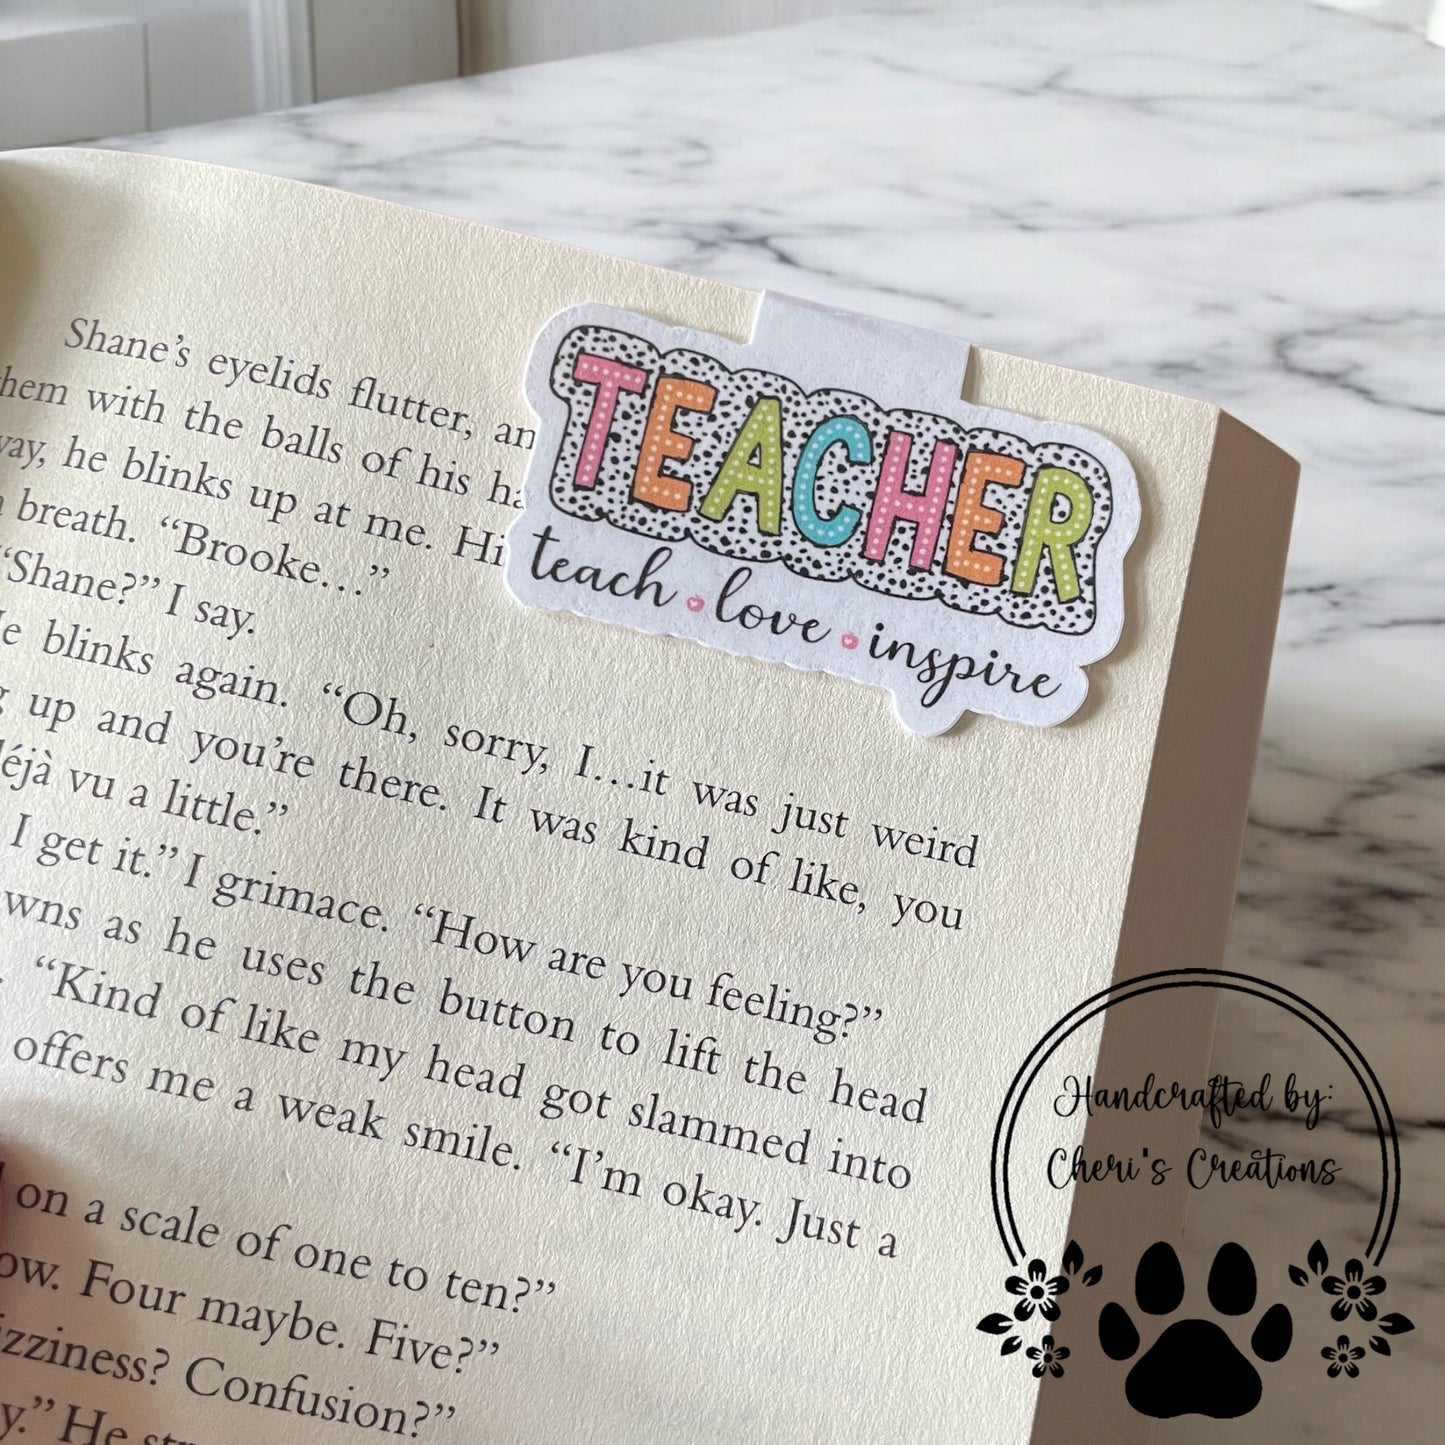 Shane's eyelids flutter, an
them with the balls of his ha
way, he blinks up at me. Hi
breath. "Brooke…"
"Shane?" I say.
He blinks again. "Oh, sorry, I…it was just weird
up and you're there. It was kind of like, you
déjà vu a little."
I get it." I grimace. "How are you feeling?"
wns as he uses the button to lift the head
"Kind of like my head got slammed into
offers me a weak smile. "I'm okay. Just a
on a scale of one to ten?"
ow. Four maybe. Five?"
izziness? Confusion?"
y." He
TEACHER
teach • love • inspire
Handcrafted by:
Cheri's Creations